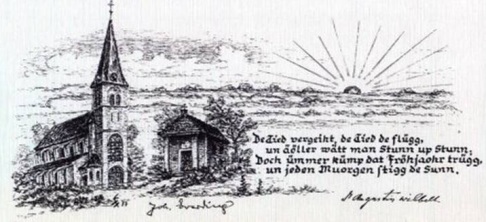 De Tied vergeiht, de Tied de flügg,
un öller wätt man Stunn up Stunn;
Doch ümmer kümp dat Fröhjaohr trügg,
un jeden Muorgen stigg de Sunn.
Augustin Wibbelt
Joh.